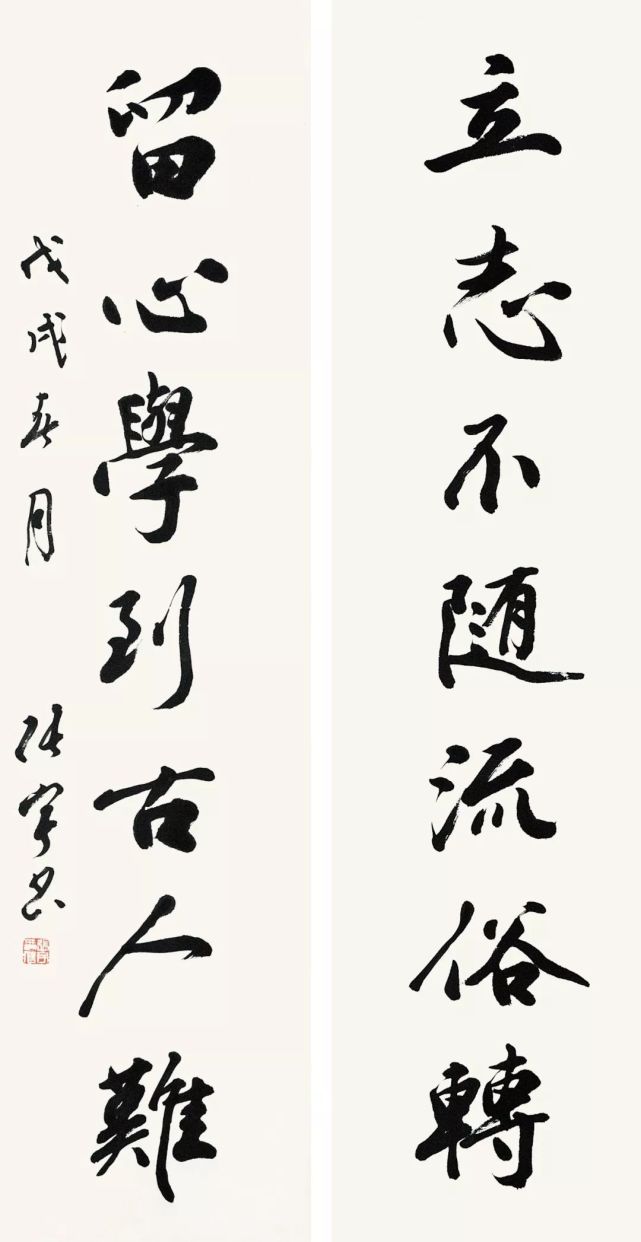 立志不随流俗轉
留心學到古人難
戊戌春月
张宇书